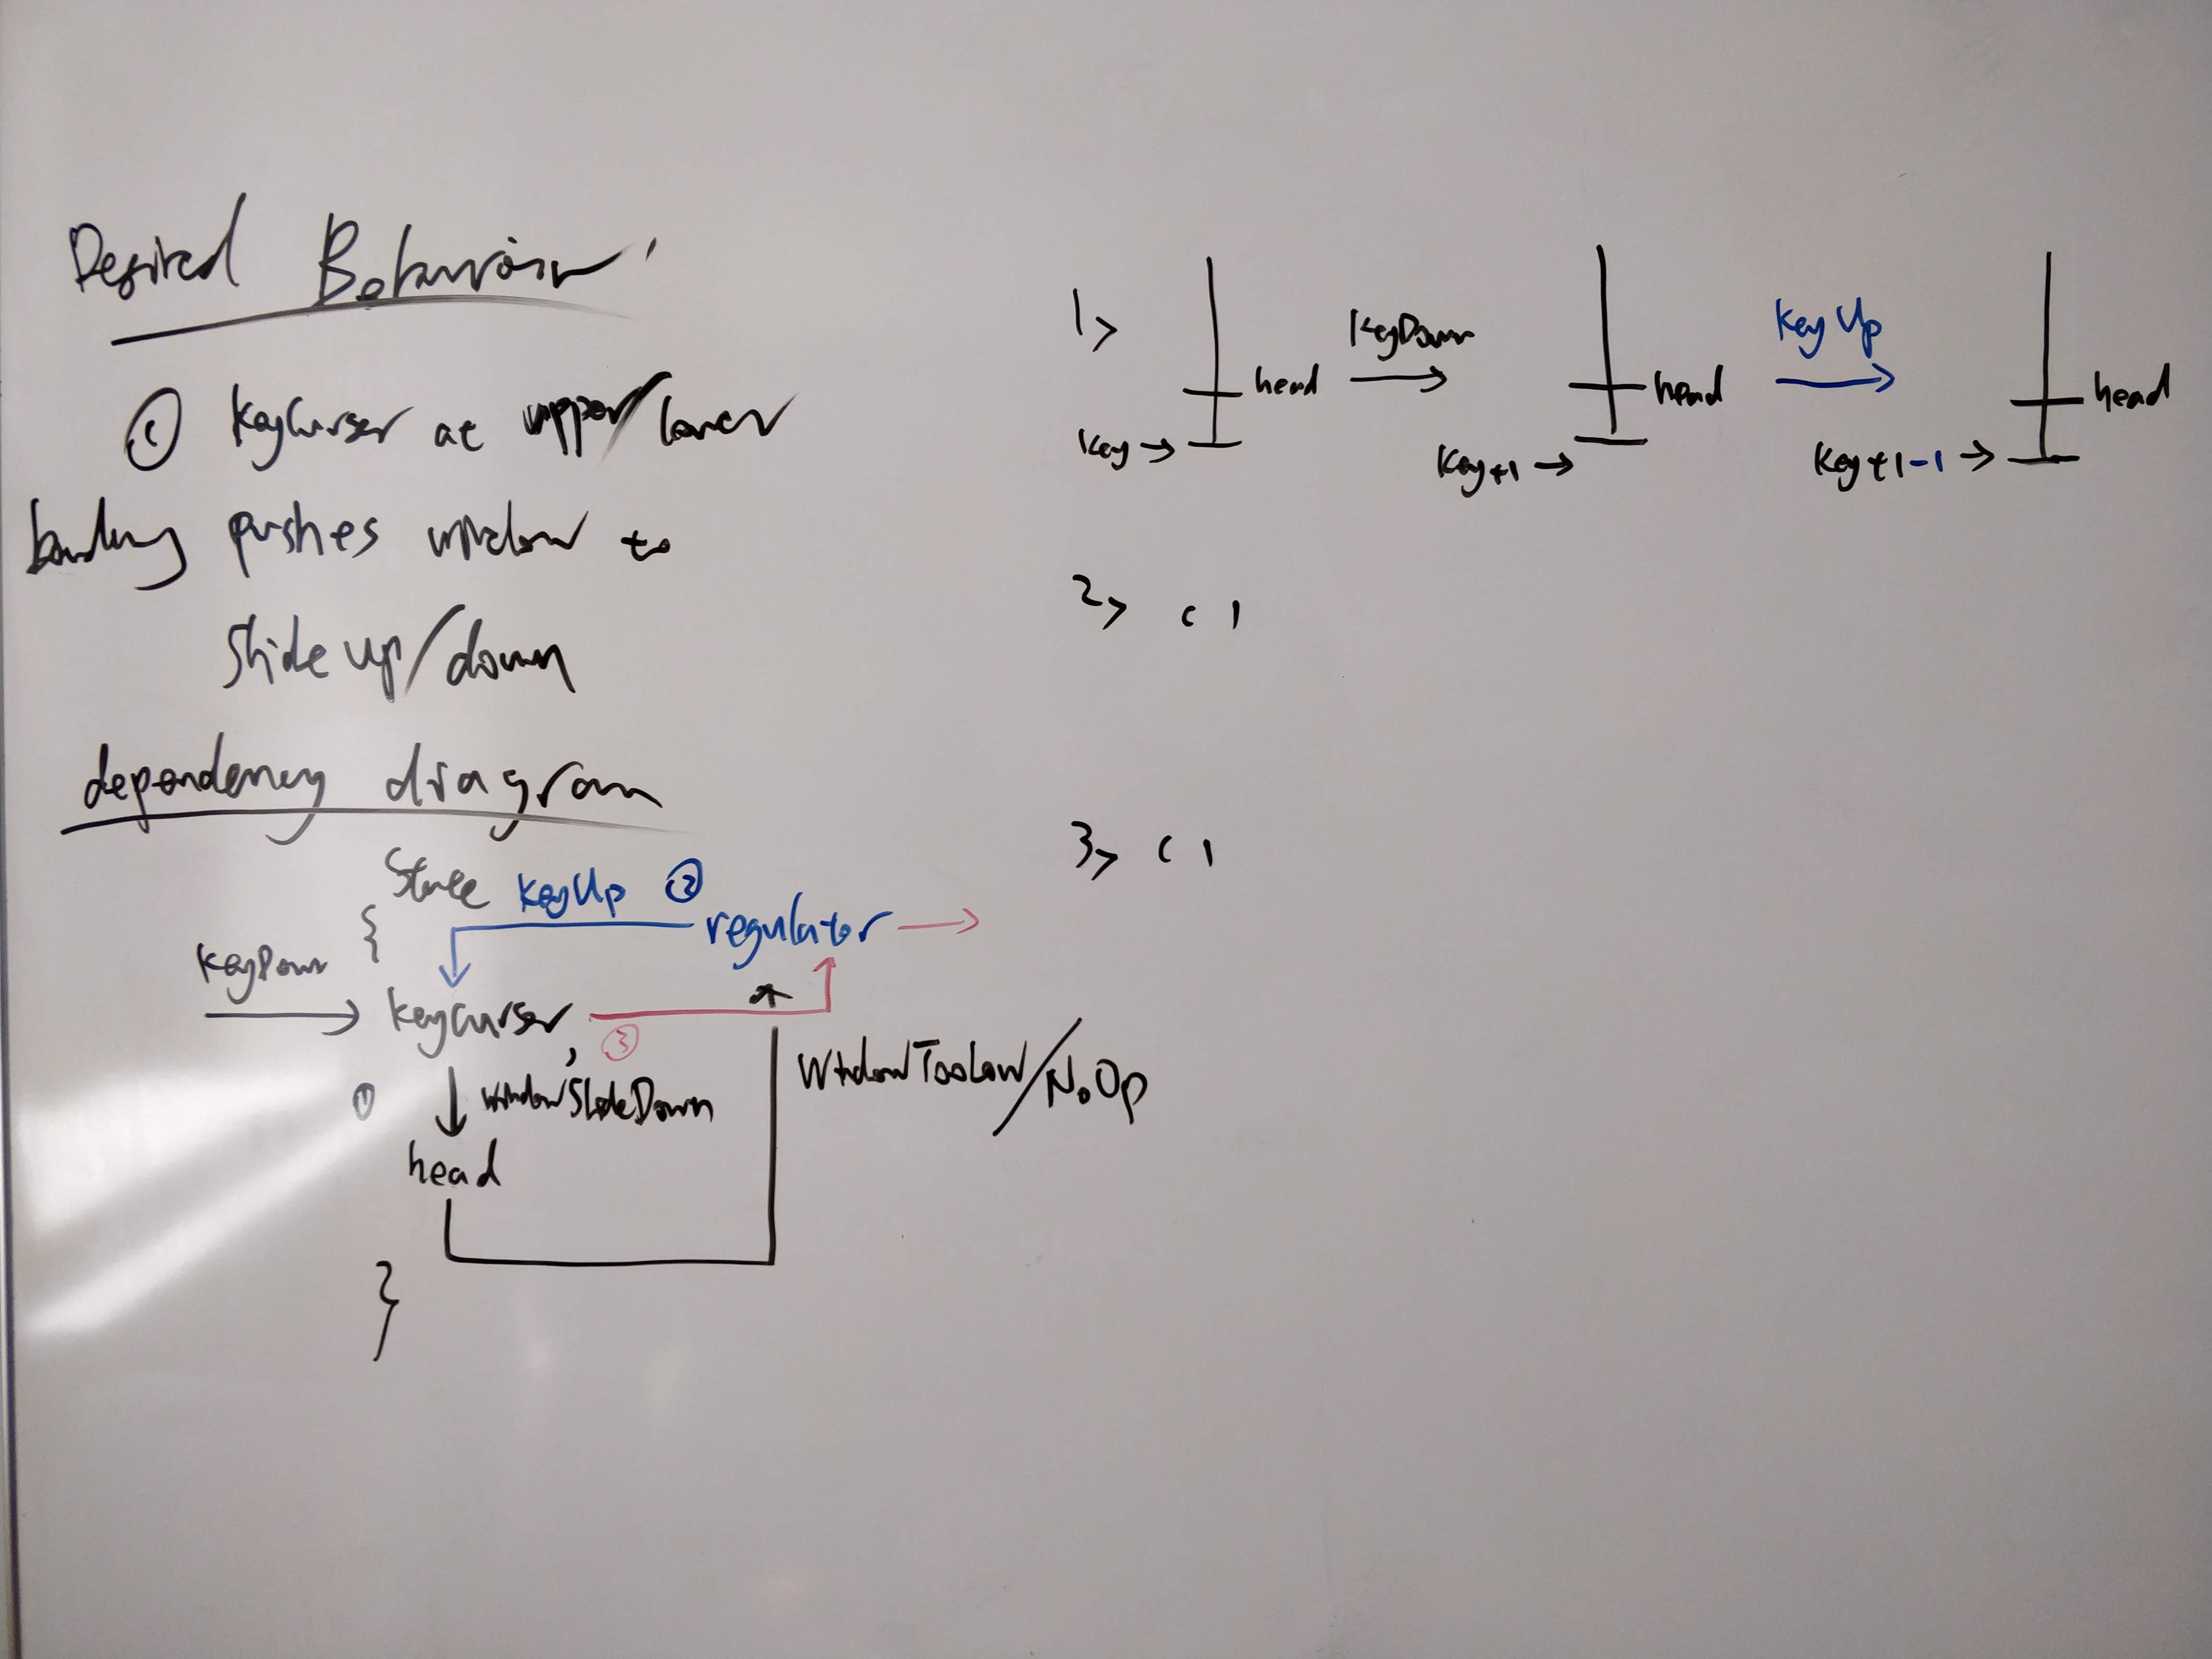 Desired Behaviour
① KeyCurser at upper/lower
boundary pushes window to
slide up/down
dependency diagram
State
{
KeyUp ②
regulator
KeyDown
keyCurser,
③
①
windowSlideDown
WindowTooLow/NoOp
head
}
1>
head
Key →
KeyDown
head
Key+1 →
Key Up
head
Key+1-1 →
2> ( )
3> ( )